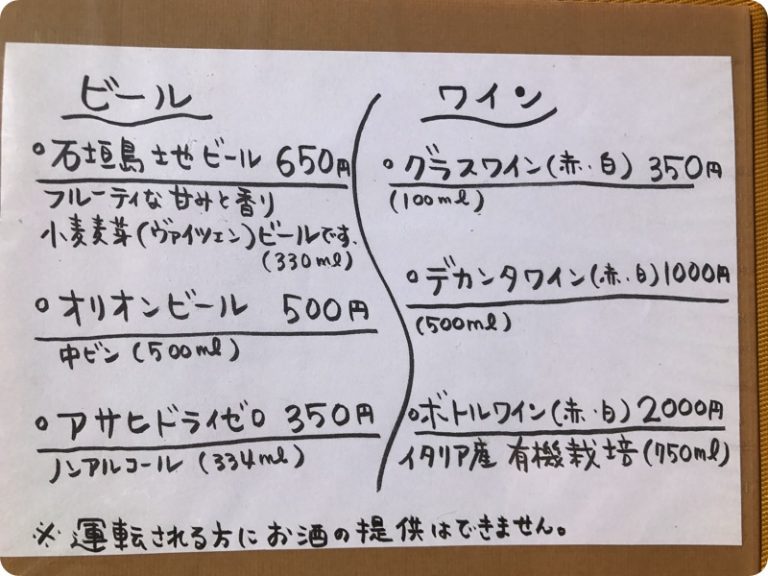 ビール
○石垣島地ビール 650円
フルーティな甘みと香り
小麦麦芽(ヴァイツェン)ビールです。
(330ml)
○オリオンビール 500円
中ビン(500ml)
○アサヒドライゼロ 350円
ノンアルコール (334ml)
ワイン
○グラスワイン(赤・白) 350円
(100ml)
○デカンタワイン(赤・白)1000円
(500ml)
○ボトルワイン(赤・白)2000円
イタリア産 有機栽培(750ml)
※運転される方にお酒の提供はできません。